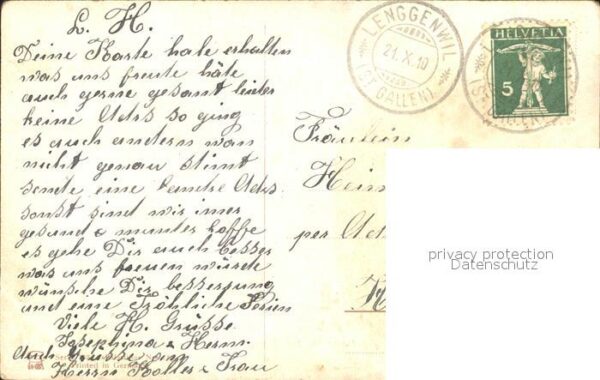 L. H.
Deine Karte habe erhalten
was uns freute häte
auch gerne gesant leider
keine Adrs so ging
es auch andern wan
nicht genau stimt
sende eine Adrs
sonst sind wir imer
gesund & munter hoffe
es gehe Dir auch besser
was uns freuen würde
wünsche Dir besserung
und eine Fröhliche Ferien
Viele H. Grüsse
Josephina & Herm.
Auch Grüsse an
Herrn Koller & Frau
LENGGENWIL
21.X.10
(ST GALLEN)
HELVETIA
5
Fräulein
Hein
per Adr
privacy protection
Datenschutz